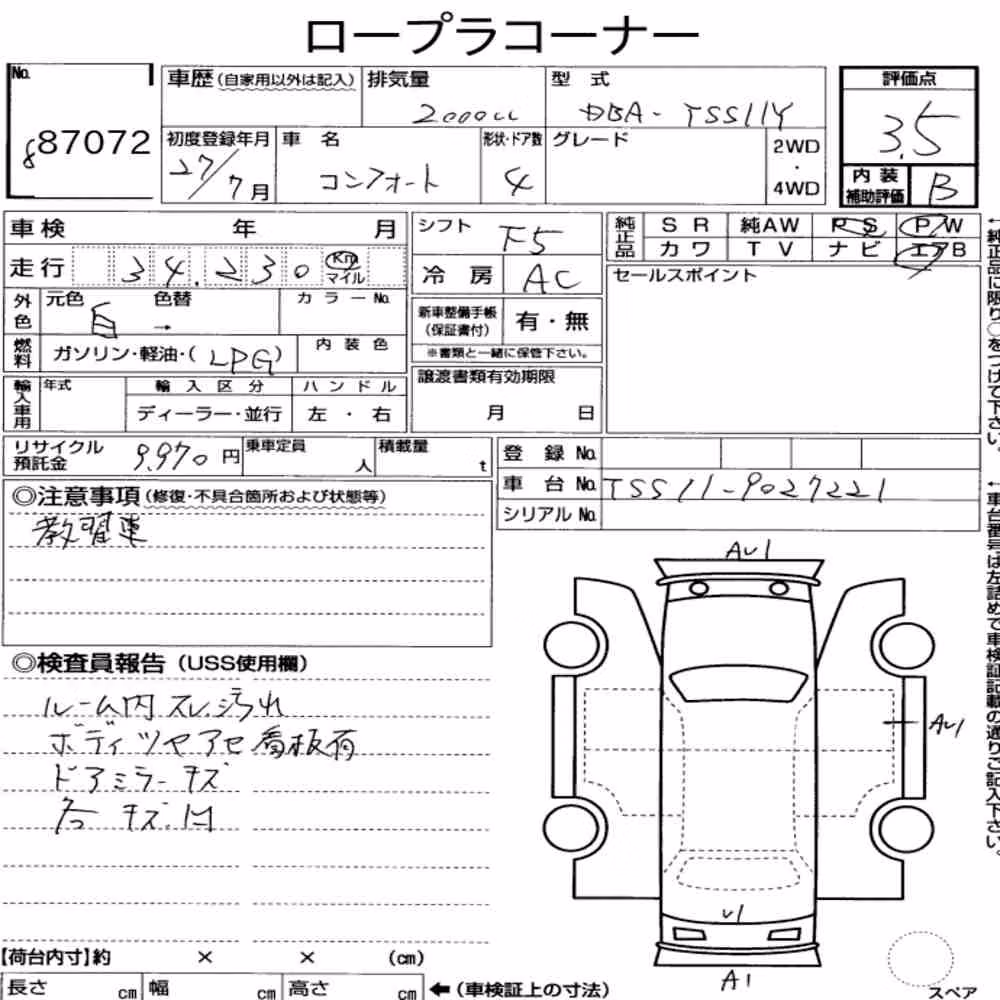 ロープラコーナー
No.
87072
車歴(自家用以外は記入)
排気量
2000cc
型 式
DBA-TSS11Y
初度登録年月
27/7月
車 名
コンフォート
形状・ドア数
4
グレード
2WD
・
4WD
評価点
3.5
内 装
補助評価
B
車検 年 月
走行 34,230 Km
マイル
外色
元色 白
色替 →
カラーNo.
燃料
ガソリン・軽油・(LPG)
内 装 色
輸入車用
年式
輸 入 区 分
ディーラー・並行
ハ ン ド ル
左 ・ 右
シフト F5
冷 房 AC
新車整備手帳
(保証書付)
有・無
※書類と一緒に保管下さい。
譲渡書類有効期限
月 日
純正品
S R 純AW P S P W
カ ワ T V ナ ビ エアB
セールスポイント
リサイクル
預託金
9,970円
乗車定員
人
積載量
t
登 録 No.
車 台 No. TSS11-9027221
シリアル No.
◎注意事項(修復・不具合箇所および状態等)
教習車
◎検査員報告(USS使用欄)
ルーム内スレ、汚れ
ボディツヤアセ看板有
ドアミラーキズ
各 キズ、凹
【荷台内寸】約 × × (cm)
長さ cm 幅 cm 高さ cm ←(車検証上の寸法)
AU1
AU1
U1
A1
スペア
←純正品に限り○をつけて下さい。
←車台番号は左詰めで車検証記載の通りご記入下さい。